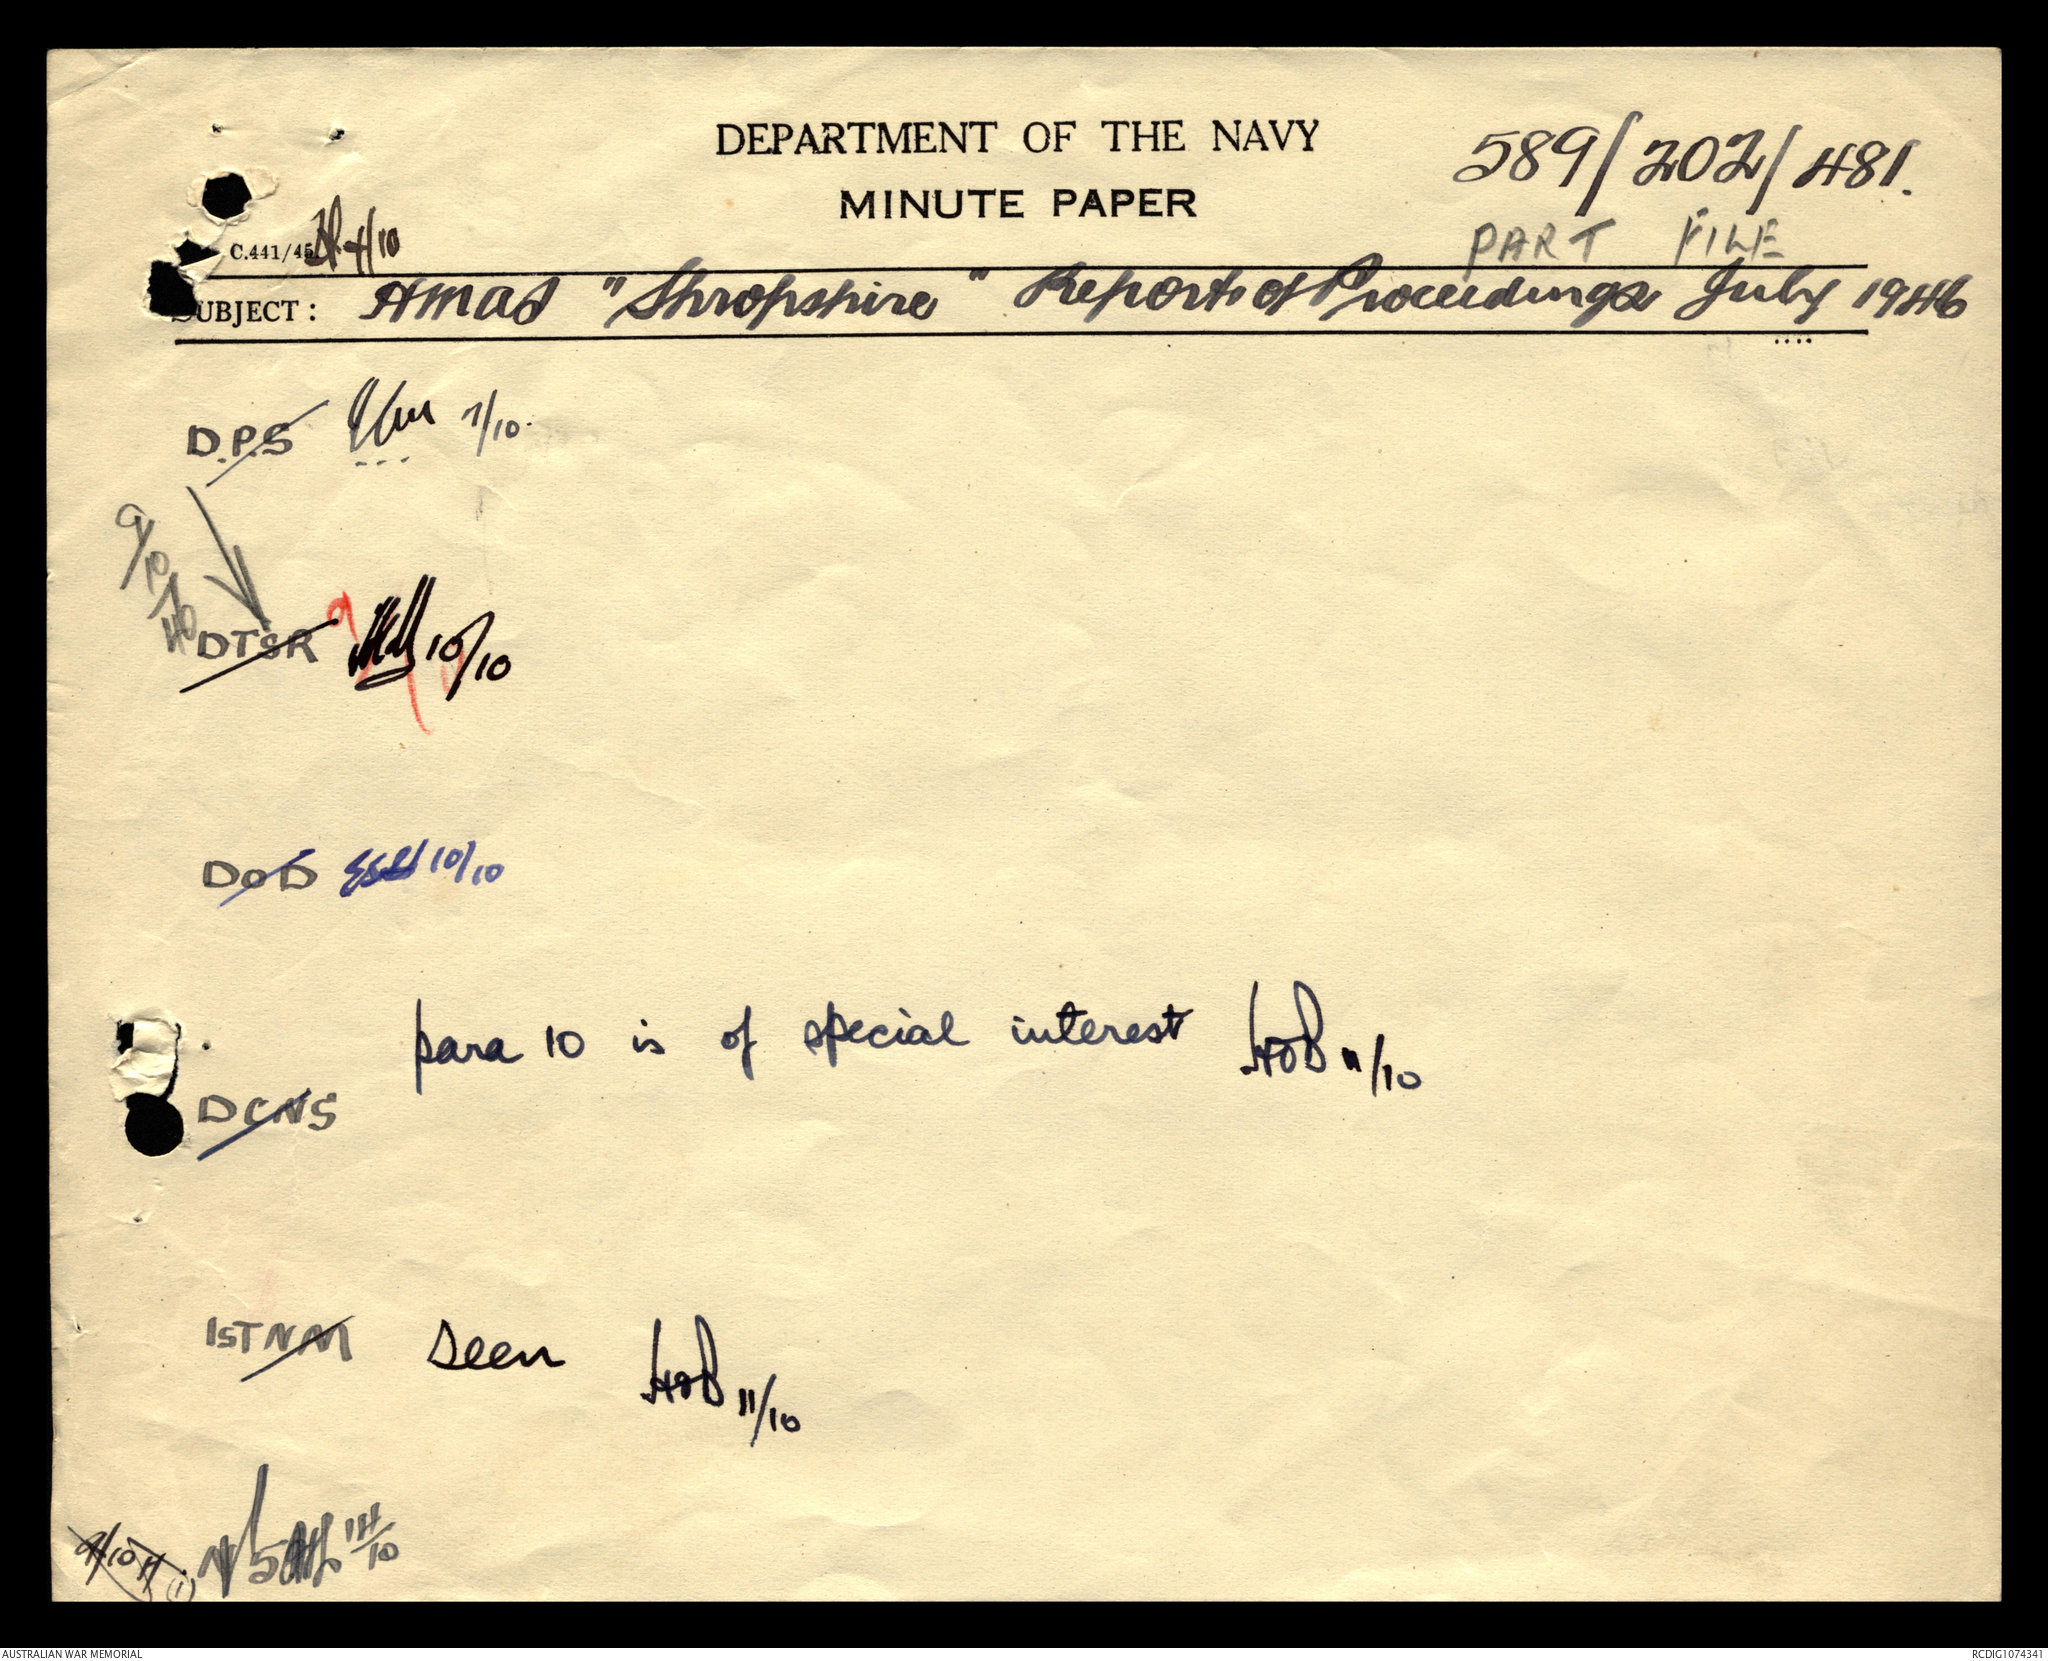 DEPARTMENT OF THE NAVY
MINUTE PAPER
589/202/481.
PART FILE
C.441/45
4/10
SUBJECT: HMAS "Shropshire" Reports of Proceedings July 1946
D.P.S 7/10.
9/10
DTSR 10/10
DoD 10/10
para 10 is of special interest HOB 11/10
DCNS
1ST NM Seen HOB 11/10
14/10
9/10
(1)
AUSTRALIAN WAR MEMORIAL
RCDIG1074341